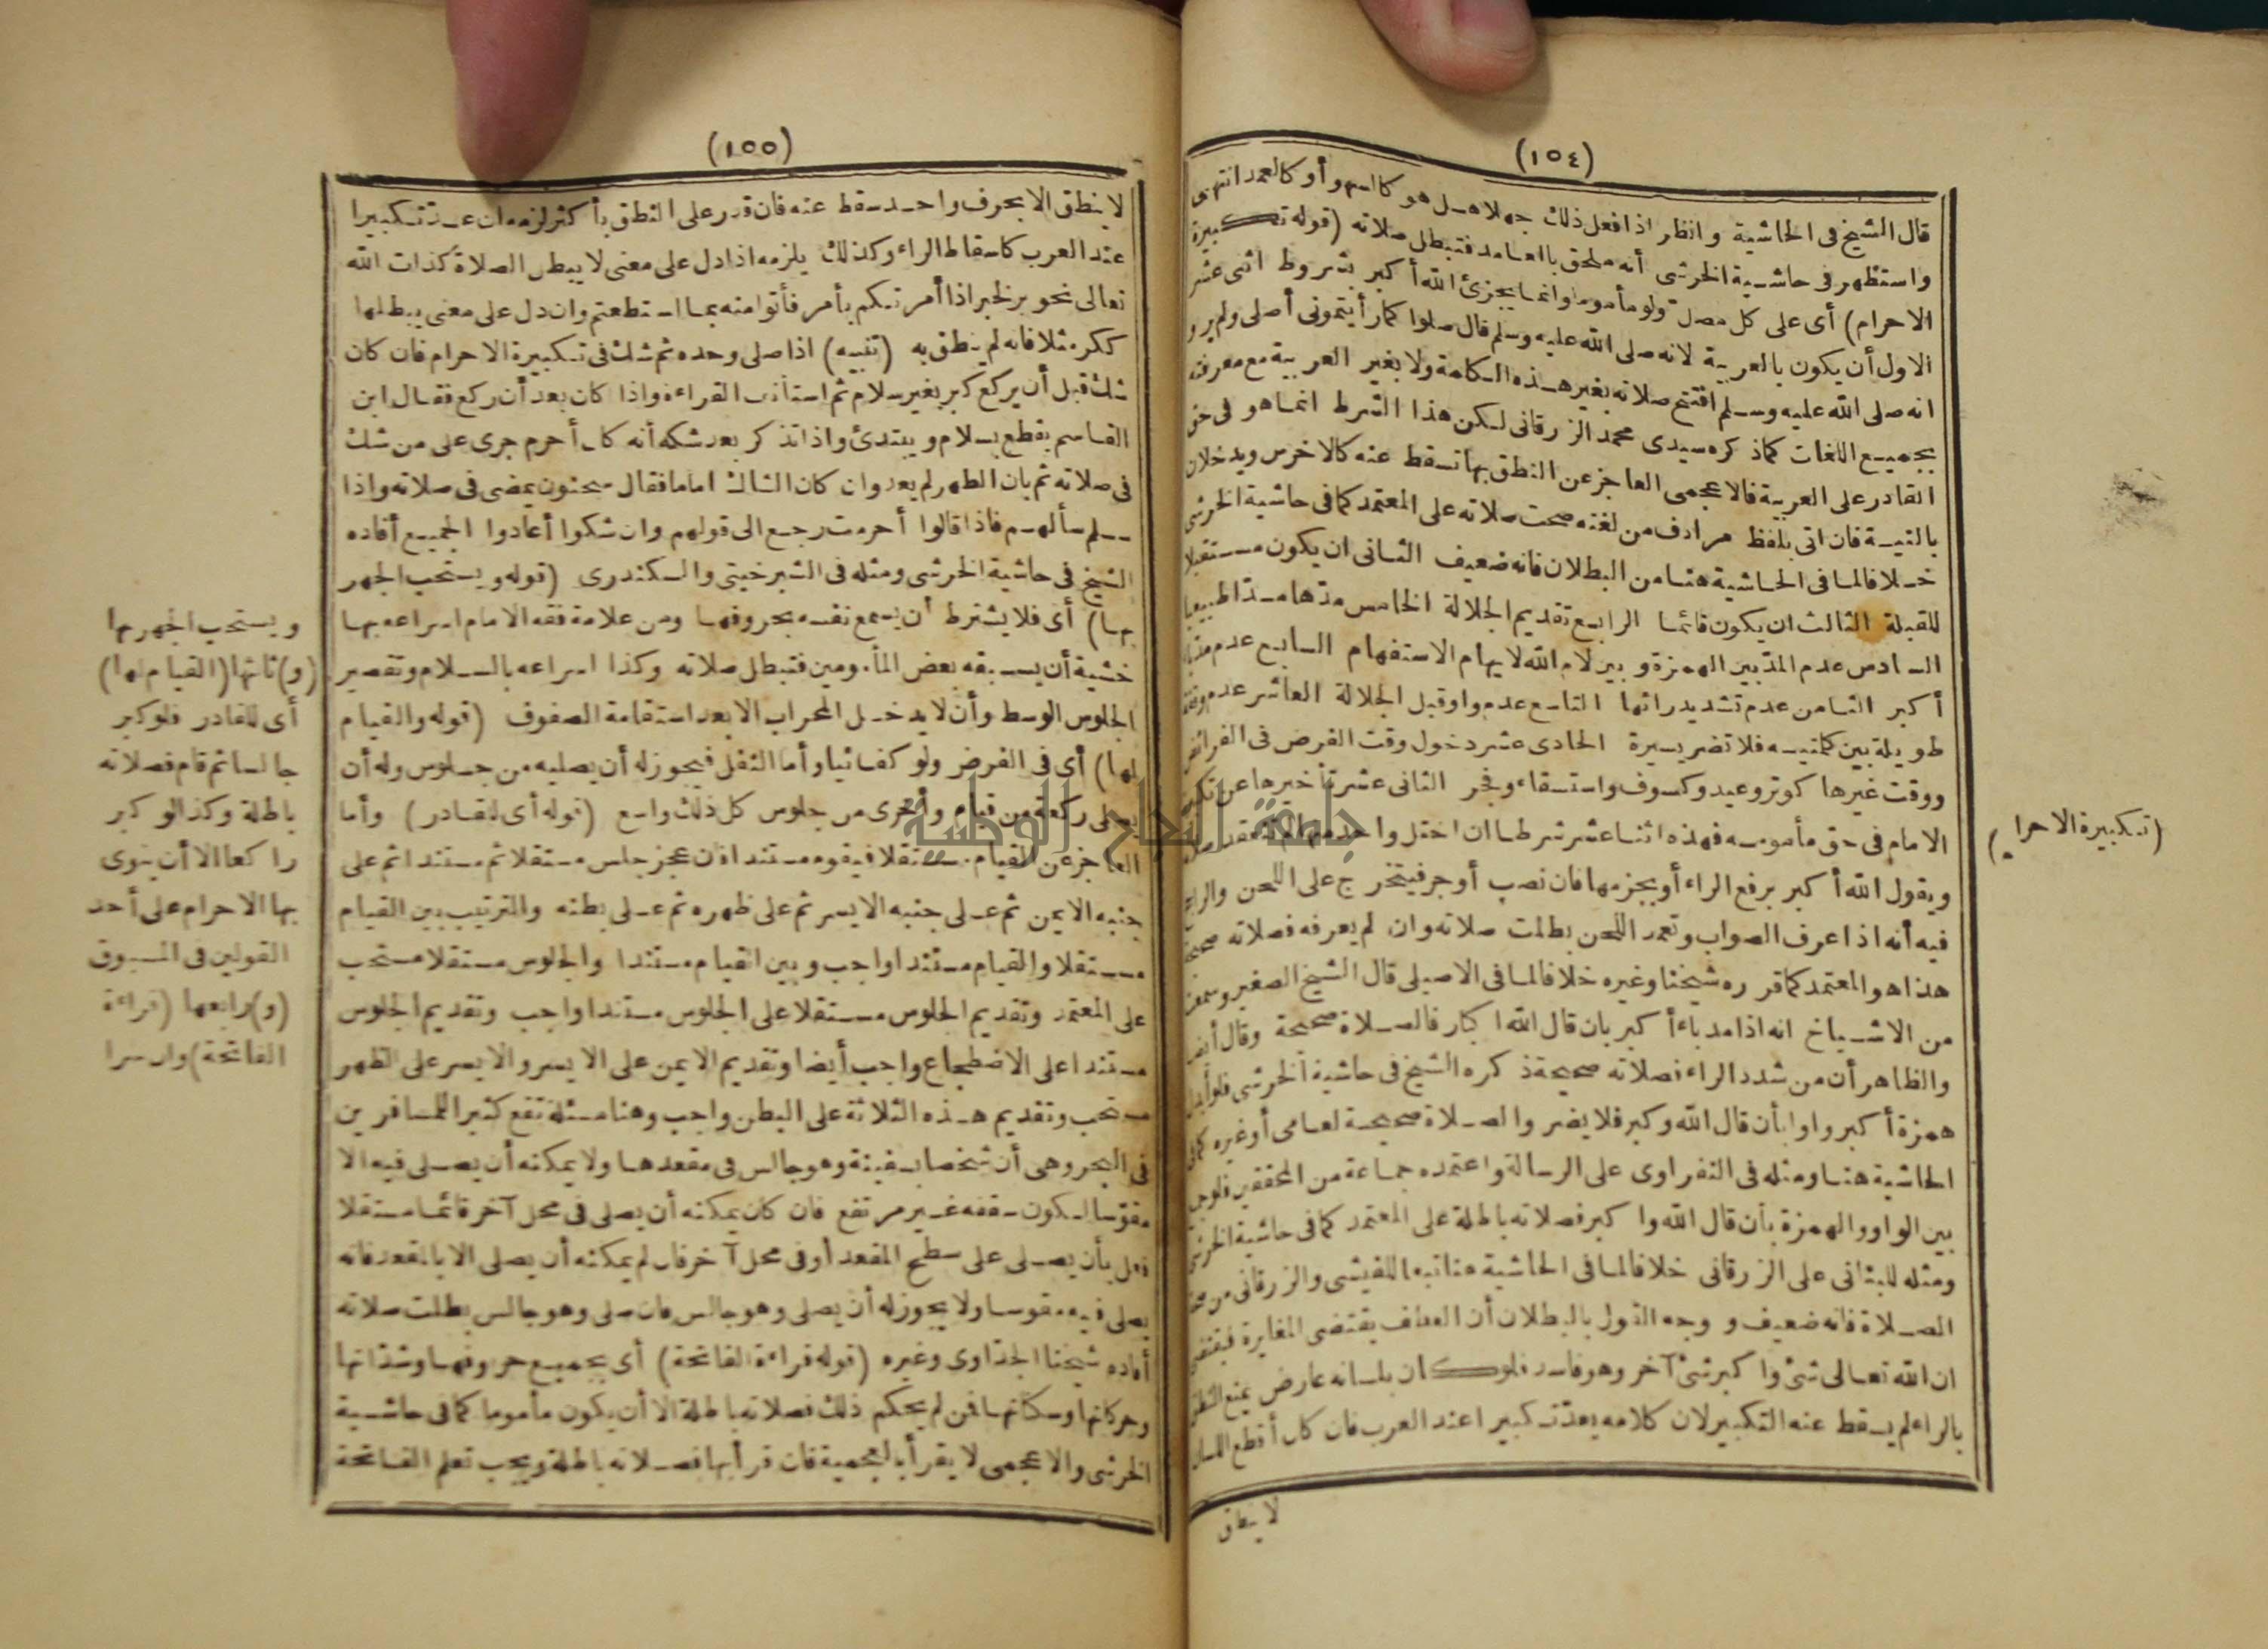 (١٥٤)
قال الشيخ فى الحاشية وانظر اذا فعل ذلك جهلا هـل هو كالسهو أو كالعمد انتهى
واستظهر فى حاشـية الخرشى أنه ملحق بالعامد فتبطل صلاته (قوله تكبيرة
الاحرام) أى على كل مصل ولو مأموما وانما يجزئ الله أكبر بشروط اثنى عشر
الاول أن يكون بالعربية لانه صلى الله عليه وسلم قال صلوا كما رأيتمونى أصلى ولم يرو
انه صلى الله عليه وسـلم افتتح صلاته بغير هـذه الكلمة ولا بغير العربية مع معرفته
بجميـع اللغات كما ذكره سيدى محمد الزرقانى لكن هذا الشرط انما هو فى حق
القادر على العربية فالاعجمى العاجز عن النطق بها تسقط عنه كالاخرس ويدخلان
بالنيـة فان اتى بلفظ مرادف من لغته صحت صلاته على المعتمد كما فى حاشية الخرشى
خـلافا لما فى الحاشية هنا من البطلان فانه ضعيف الثانى ان يكون مستقبلا
للقبلة الثالث ان يكون قائما الرابع تقديم الجلالة الخامس مدها مدا طبيعيا
السادس عدم المد بين الهمزة وبين لام الله لايهام الاستفهام السابع عدم مد باء
أكبر الثامن عدم تشديد رائها التاسع عدم واو قبل الجلالة العاشر عدم وقفة
طويلة بين كلمتيـه فلا تضر يسيرة الحادى عشر دخول وقت الفرض فى الفرائض
ووقت غيرها كوتر وعيد وكسوف واستسقاء وفجر الثانى عشر تأخيرها عن تكبير
الامام فى حق مأمومـه فهذه اثنا عشر شرطا ان اختل واحد منها لم تنعقد صلاته
ويقول الله أكبر برفع الراء أو بجزمها فان نصب أو جر فيتخرج على اللحن والراجح
فيه أنه اذا عرف الصواب وتعمد اللحن بطلت صلاته وان لم يعرفه فصلاته صحيحة
هذا هو المعتمد كما قرره شيخنا وغيره خلافا لما فى الاصيلى قال الشيخ الصغير وسمعت
من الاشـياخ انه اذا مد باء أكبر بان قال الله اكبار فالصـلاة صحيحة وقال أيضا
والظاهر أن من شدد الراء فصلاته صحيحة ذكره الشيخ فى حاشية الخرشى فلو أبدل
همزة أكبر واوا بأن قال الله وكبر فلا يضر والصـلاة صحيحة لعامى أو غيره كما فى
الحاشية هنا ومثله فى النفراوى على الرسالة واعتمده جماعة من المحققين فلو جمع
بين الواو والهمزة بأن قال الله وا كبر فصلاته باطلة على المعتمد كما فى حاشية الخرشى
ومثله للبنانى على الزرقانى خلافا لما فى الحاشية هنا تبعا للفيشى والزرقانى من صحة
الصـلاة فانه ضعيف ووجه القول بالبطلان أن العطف يقتضى المغايرة فيقتضى
ان الله تعـالى شئ وا كبر شئ آخر وهو فاسد فلو كان بلسانه عارض يمنع النطق
بالراء لم يسقط عنه التكبير لان كلامه يعد تكبيرا عند العرب فان كان أقطع اللسان
لا ينطق
(تكبيرة الاحرام)
(١٥٥)
لا ينطق الا بحرف واحـد سقط عنه فان قدر على النطق بأكثر لزمه ان عـد تكبيرا
عند العرب كاسقاط الراء وكذلك يلزمه اذا دل على معنى لا يبطل الصلاة كذات الله
تعالى نحو بر لخبر اذا أمرتكم بأمر فأتوا منه بما استطعتم وان دل على معنى يبطلها
ككر مثلا فانه لم ينطق به (تنبيه) اذا صلى وحده ثم شك فى تكبيرة الاحرام فان كان
شك قبل أن يركع كبر بغير سلام ثم استأنف القراءة واذا كان بعد أن ركع فقال ابن
القاسم يقطع بسلام ويبتدئ واذا تذكر بعد شكه أنه كان أحرم جرى على من شك
فى صلاته ثم بان الطهر لم يعد وان كان الشاك اماما فقال سحنون يمضى فى صلاته واذا
سلم سألهـم فاذا قالوا أحرمت رجع الى قولهم وان شكوا أعادوا الجميـع أفاده
الشيخ فى حاشية الخرشى ومثله فى الشبرخيتى والسكندرى (قوله ويستحب الجهر
بهـا) أى فلا يشترط أن يسمع نفسه بحروفها ومن علامة فقه الامام اسراعه بها
خشية أن يسـبقه بعض المأمومين فتبطل صلاته وكذا اسراعه بالسـلام وتقصير
الجلوس الوسط وأن لا يدخـل المحراب الا بعد استقامة الصفوف (قوله والقيام
لها) أى فى الفرض ولو كفائيا وأما النفل فيجوز له أن يصليه من جـلوس وله أن
يصلى ركعة من قيام وأخرى من جلوس كل ذلك واسع (قوله أى للقادر) وأما
العاجز عن القيام مستقلا فيقوم مستندا فان عجز جلس مستقلا ثم مستندا ثم على
جنبه الايمن ثم عـلى جنبه الايسر ثم على ظهره ثم عـلى بطنه والترتيب بين القيام
مستقلا والقيام مستندا واجب وبين القيام مستندا والجلوس مستقلا مستحب
على المعتمد وتقديم الجلوس مستقلا على الجلوس مستندا واجب وتقديم الجلوس
مستندا على الاضطجاع واجب أيضا وتقديم الايمن على الايسر والايسر على الظهر
مستحب وتقديم هـذه الثلاثة على البطن واجب وهنا مسئلة تقع كثيرا للمسافرين
فى البحر وهى أن شخصا بسفينة وهو جالس فى مقعدها ولا يمكنه أن يصـلى فيه الا
مقوسا لكون سقفه غـير مرتفع فان كان يمكنه أن يصلى فى محل آخر قائما مستقلا
فعل بأن يصـلى على سطح المقعد أو فى محل آخر فان لم يمكنه أن يصلى الا بالمقعد فانه
يصلى فيه مقوسا ولا يجوز له أن يصلى وهو جالس فان صلى وهو جالس بطلت صلاته
أفاده شيخنا الجداوى وغيره (قوله قراءة الفاتحة) أى بجميـع حروفها وشداتها
وحركاتها وسكناتها فمن لم يحكم ذلك فصلاته باطلة الا أن يكون مأموما كما فى حاشـية
الخرشى والاعجمى لا يقرأ بالعجمية فان قرأ بها فصـلاته باطلة ويجب تعلم الفـاتحة
ويستحب الجهر بها
(و) ثالثها (القيام لها)
أى للقادر فلو كبر
جالسا ثم قام فصلاته
باطلة وكذا لو كبر
راكعا الا أن ينوى
بها الاحرام على أحد
القولين فى المسبوق
(و) رابعها (قراءة
الفاتحة) وان سرا
جامعة النجاح الوطنية